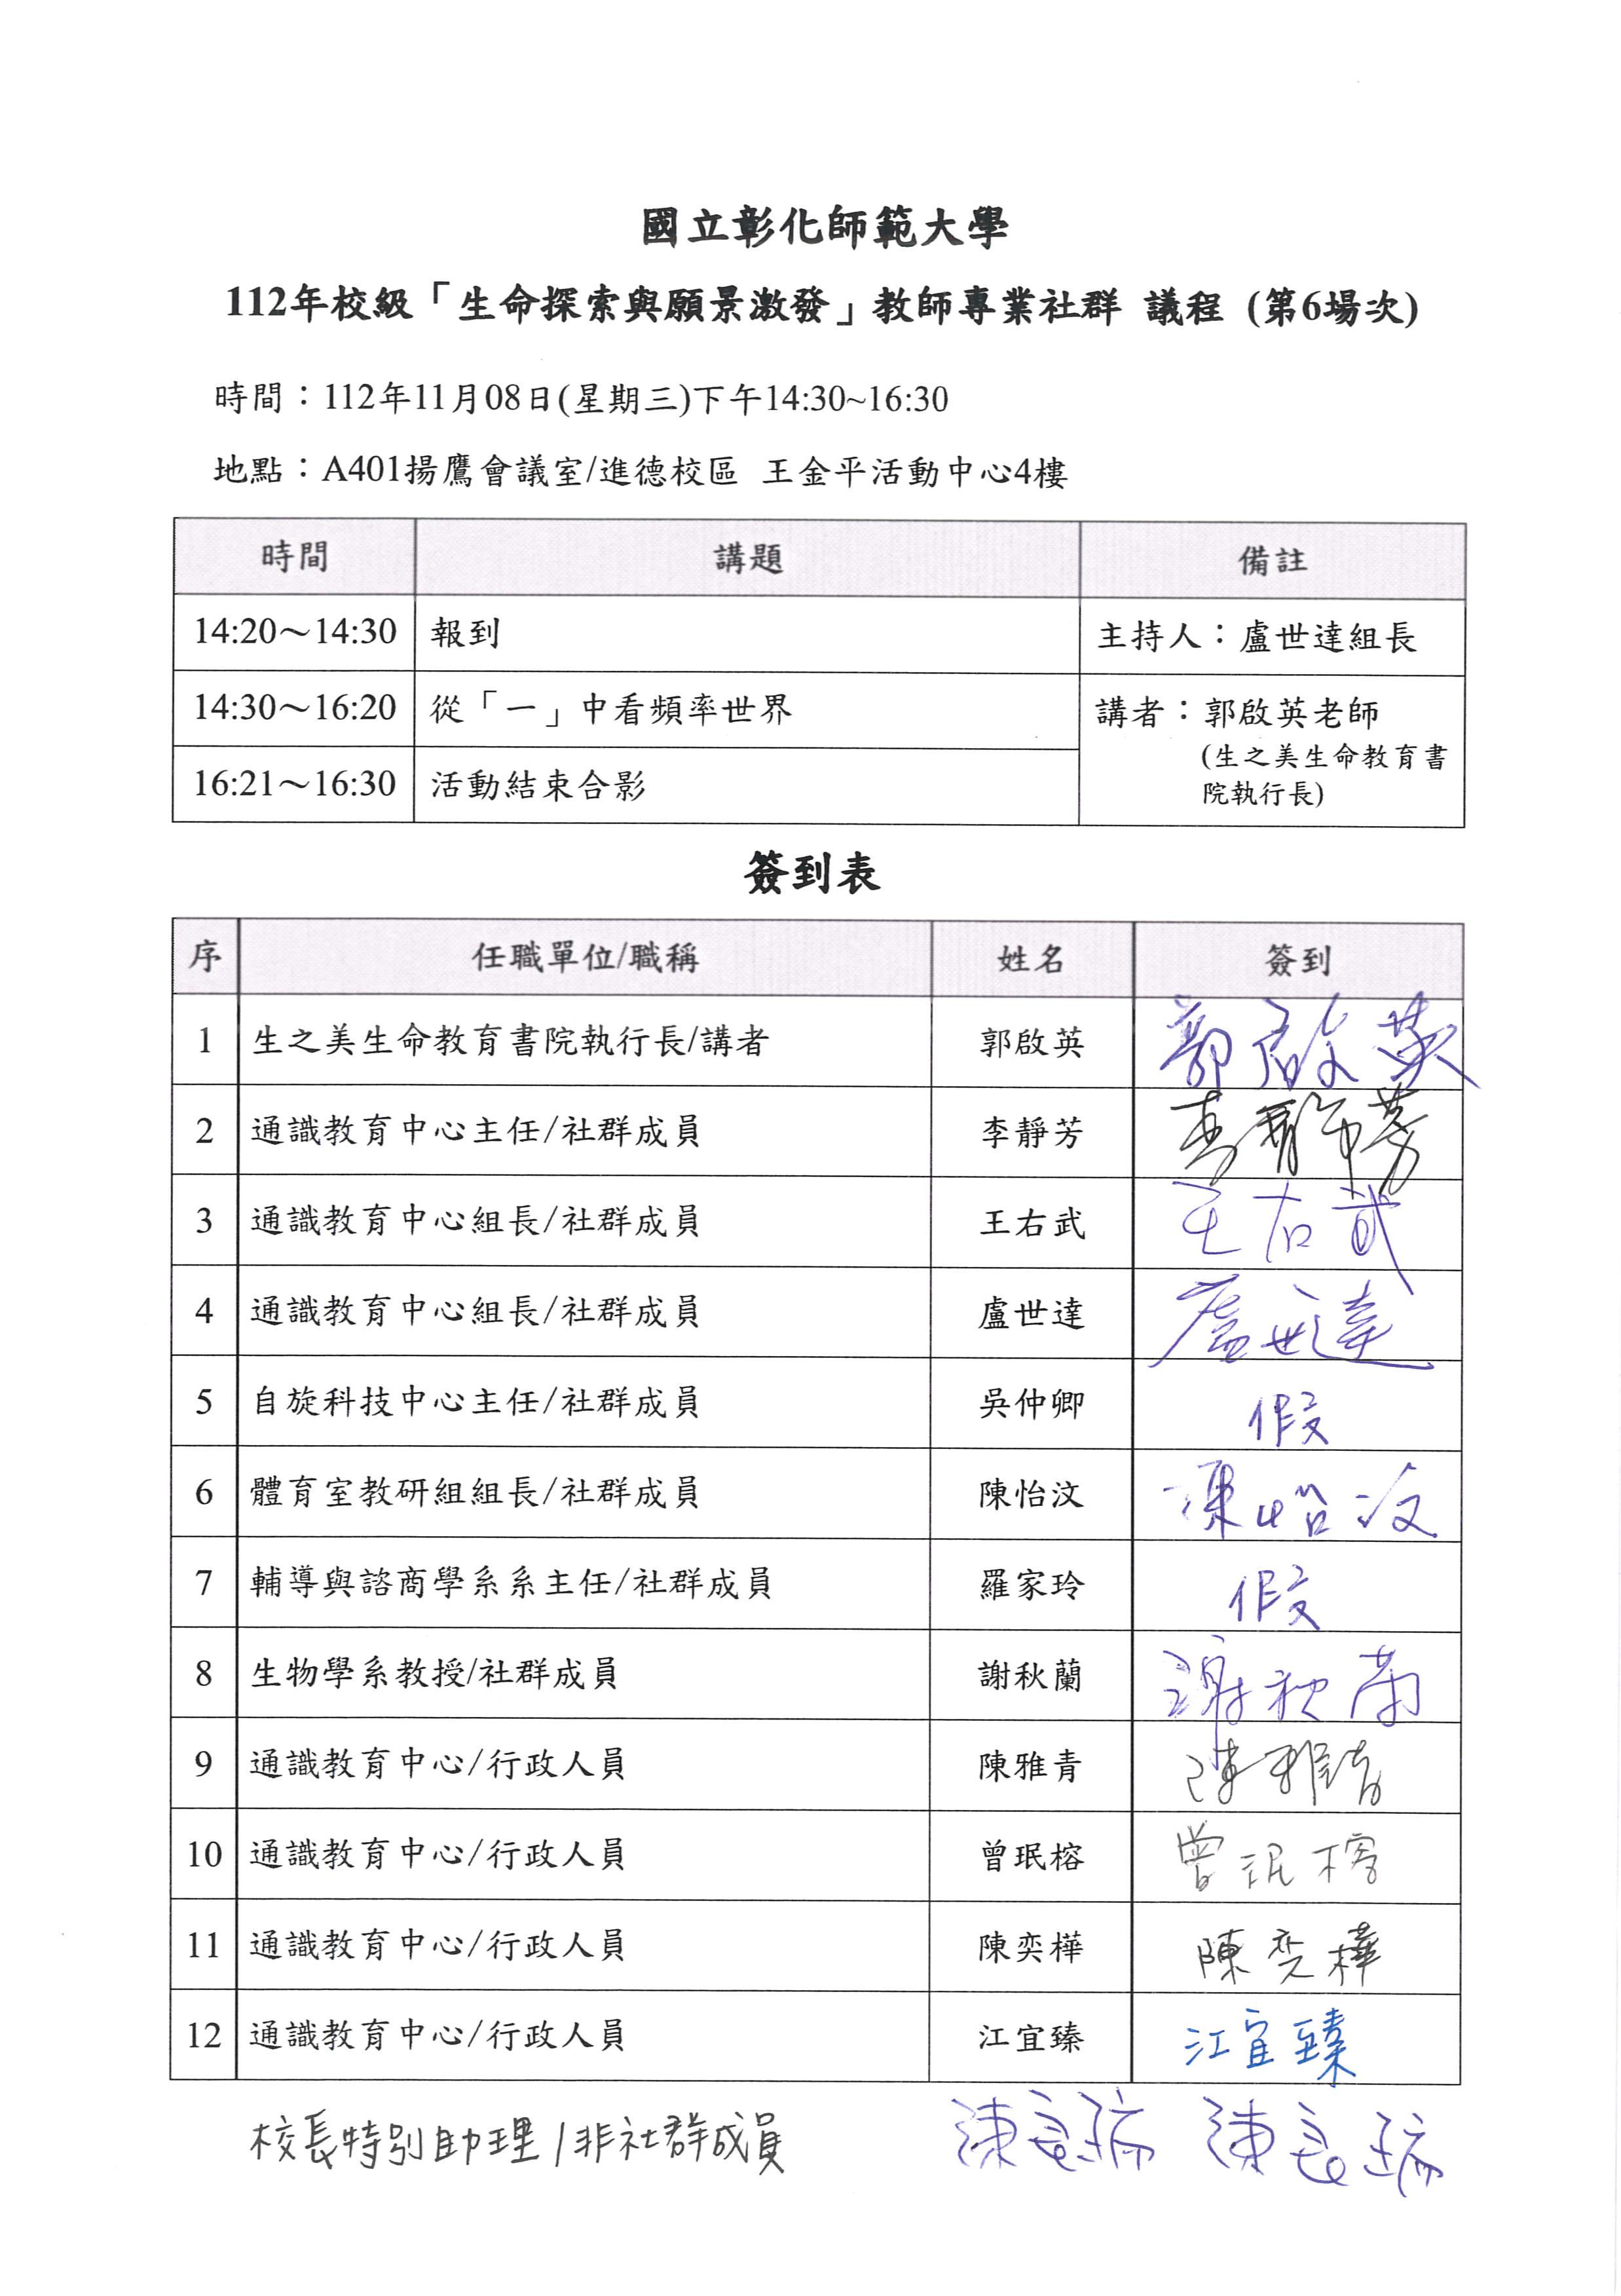 國立彰化師範大學
112年校級「生命探索與願景激發」教師專業社群 議程 (第6場次)
時間：112年11月08日(星期三)下午14:30~16:30
地點：A401揚鷹會議室/進德校區 王金平活動中心4樓
時間 講題 備註
14:20～14:30 報到 主持人：盧世達組長
14:30～16:20 從「一」中看頻率世界 講者：郭啟英老師
(生之美生命教育書
16:21～16:30 活動結束合影 院執行長)
簽到表
序 任職單位/職稱 姓名 簽到
1 生之美生命教育書院執行長/講者 郭啟英 郭啟英
2 通識教育中心主任/社群成員 李靜芳 李靜芳
3 通識教育中心組長/社群成員 王右武 王右武
4 通識教育中心組長/社群成員 盧世達 盧世達
5 自旋科技中心主任/社群成員 吳仲卿 假
6 體育室教研組組長/社群成員 陳怡汶 陳怡汶
7 輔導與諮商學系系主任/社群成員 羅家玲 假
8 生物學系教授/社群成員 謝秋蘭 謝秋蘭
9 通識教育中心/行政人員 陳雅青 陳雅青
10 通識教育中心/行政人員 曾珉榕 曾珉榕
11 通識教育中心/行政人員 陳奕樺 陳奕樺
12 通識教育中心/行政人員 江宜臻 江宜臻
校長特別助理/非社群成員